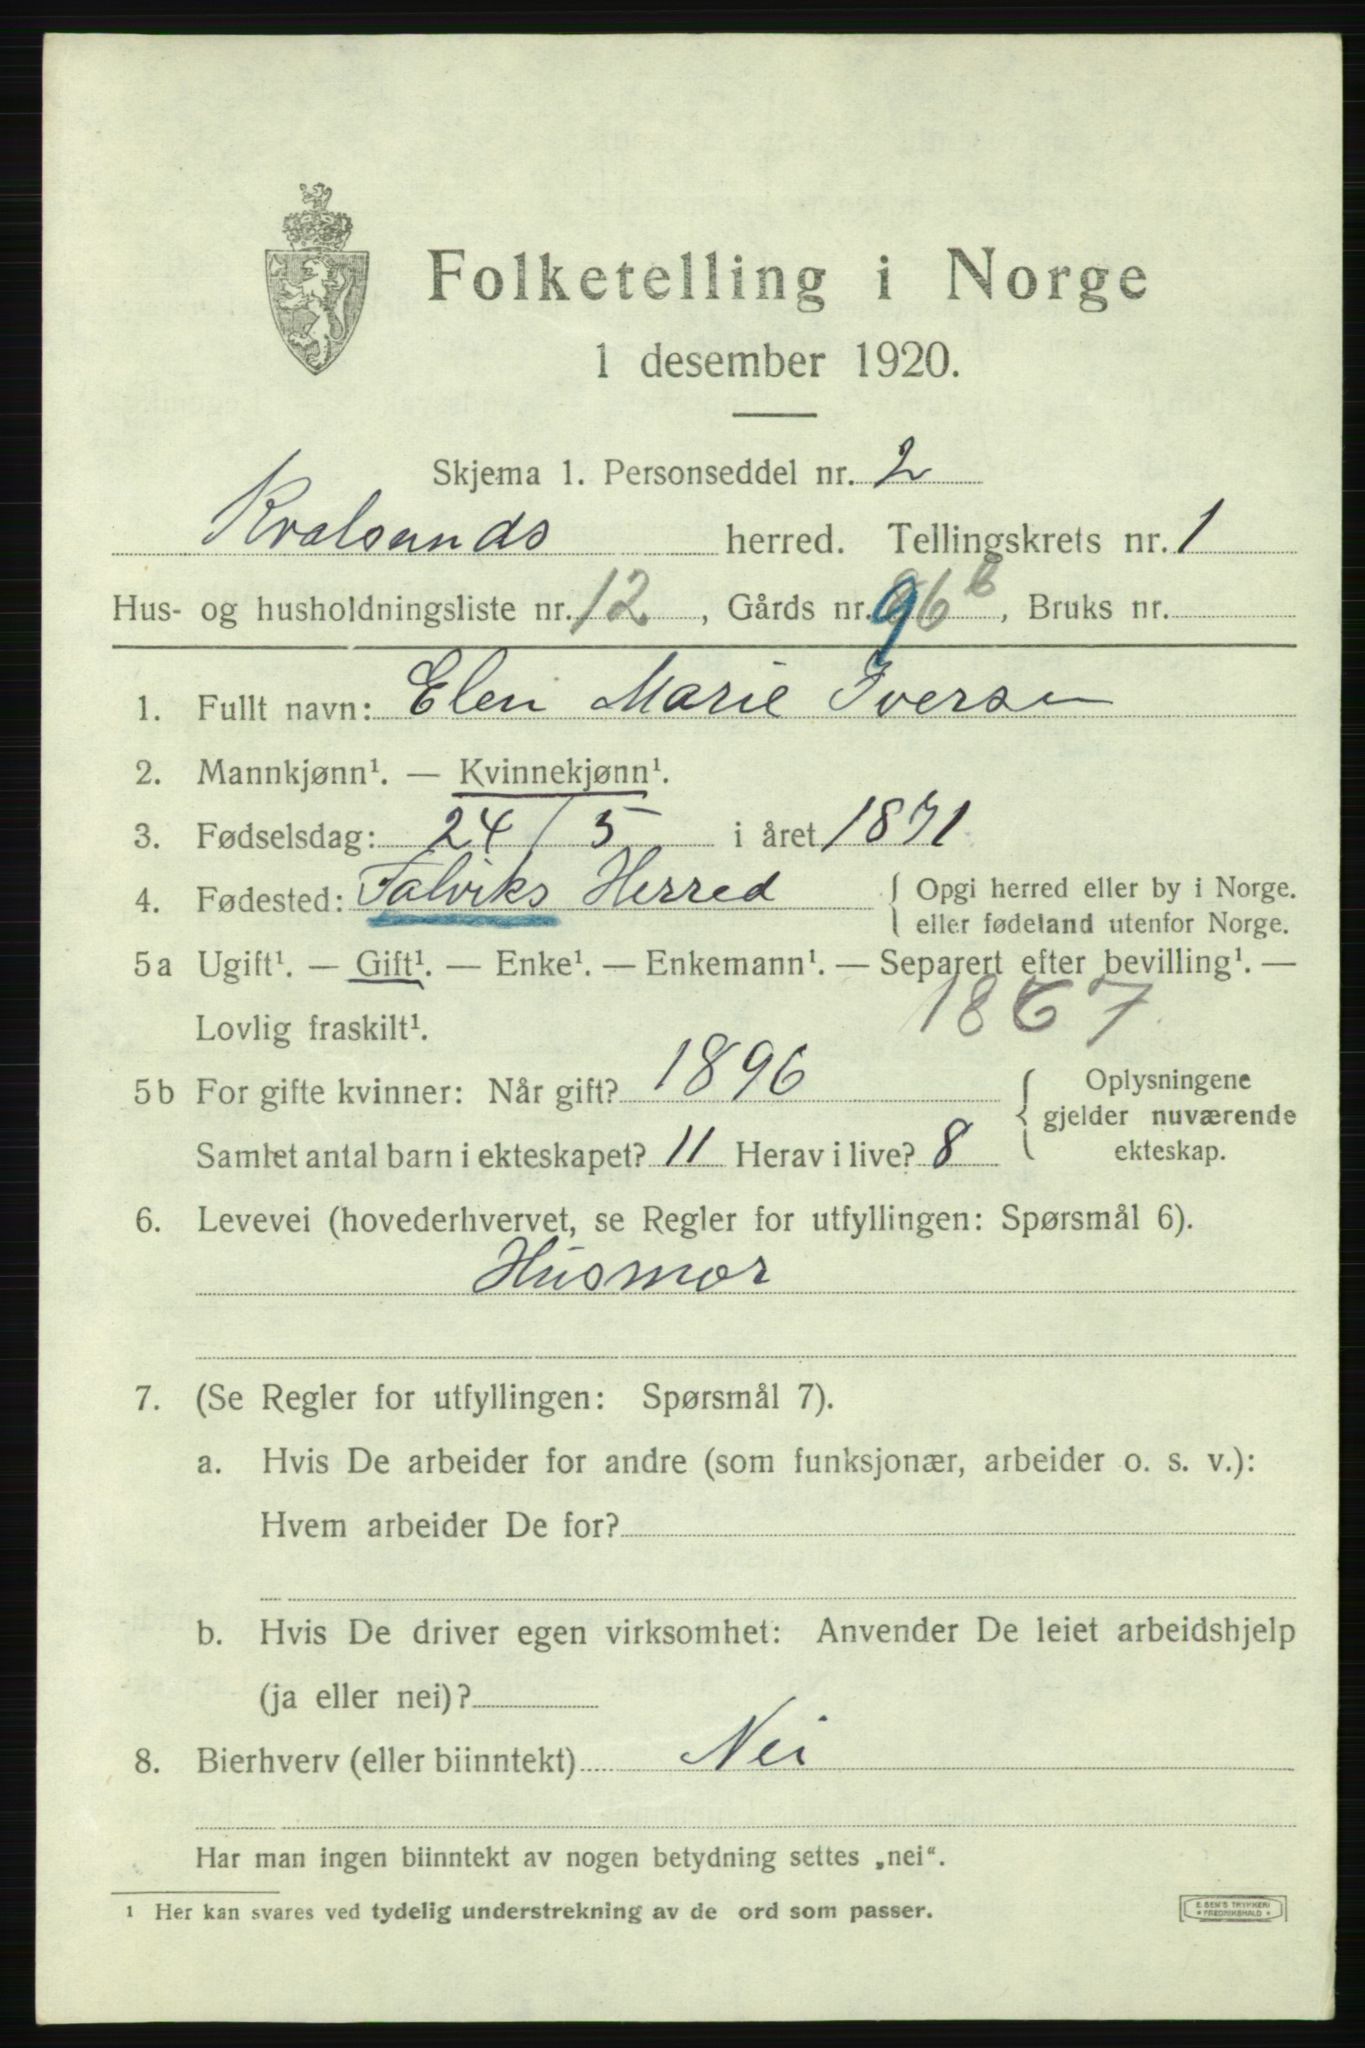 Folketelling i Norge
1 desember 1920.
Skjema 1. Personseddel nr. 2
Kvalsunds herred. Tellingskrets nr. 1
Hus- og husholdningsliste nr. 12, Gårds nr. 96 b, Bruks nr.
1. Fullt navn: Elen Marie Iversen
2. Mannkjønn¹. — Kvinnekjønn¹.
3. Fødselsdag: 24/5 i året 1871
4. Fødested: Talviks Herred { Opgi herred eller by i Norge.
eller fødeland utenfor Norge.
5a Ugift¹. — Gift¹. — Enke¹. — Enkemann¹. — Separert efter bevilling¹. —
Lovlig fraskilt¹. 1867
5b For gifte kvinner: Når gift? 1896
Samlet antal barn i ekteskapet? 11 Herav i live? 8
{ Oplysningene
gjelder nuværende
ekteskap.
6. Levevei (hovederhvervet, se Regler for utfyllingen: Spørsmål 6).
Husmor
7. (Se Regler for utfyllingen: Spørsmål 7).
a. Hvis De arbeider for andre (som funksjonær, arbeider o. s. v.):
Hvem arbeider De for?
b. Hvis De driver egen virksomhet: Anvender De leiet arbeidshjelp
(ja eller nei)?
8. Bierhverv (eller biinntekt) Nei
Har man ingen biinntekt av nogen betydning settes „nei“.
¹ Her kan svares ved tydelig understrekning av de ord som passer.
E. SEM'S TRYKKERI
* FREDRIKSHALD *